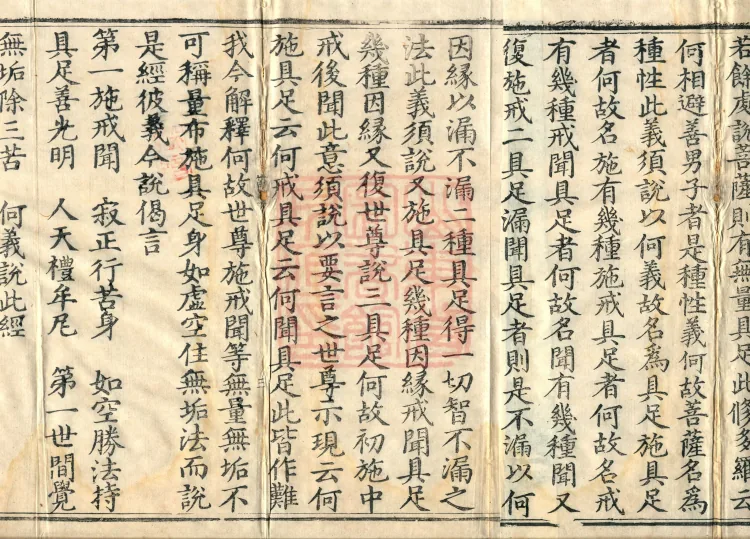 若餘處說菩薩則有無量具足此修多羅云
何相避善男子者是種性義何故菩薩名為
種性此義須說以何義故名為具足施具足
者何故名施有幾種施戒具足者何故名戒
有幾種戒聞具足者何故名聞有幾種聞又
復施戒二具足漏聞具足者則是不漏以何
因緣以漏不漏二種具足得一切智不漏之
法此義須說又施具足幾種因緣戒聞具足
幾種因緣又復世尊說三具足何故初施中
戒後聞此意須說以要言之世尊示現云何
施具足云何戒具足云何聞具足此皆作難
三
我今解釋何故世尊施戒聞等無量無垢不
可稱量布施具足身如虛空住無垢法而說
是經彼義今說偈言
第一施戒聞　寂正行苦身　如空勝法持
具足善光明　人天禮牟尼　第一世間覺
無垢除三苦　何義說此經